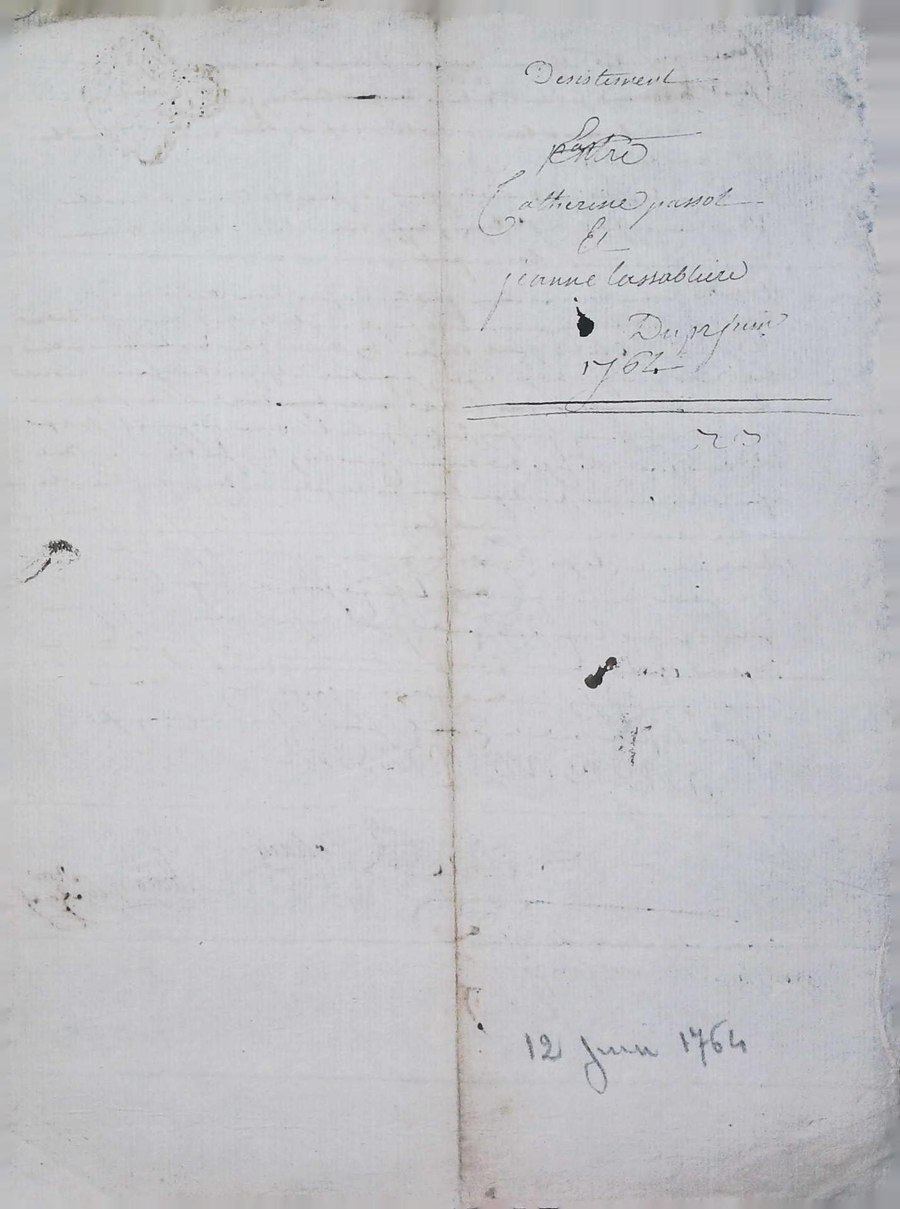 Desistement
Entre
Catherine passot
Et
jeanne lassabliere
Du 12 juin
1764
12 Juin 1764